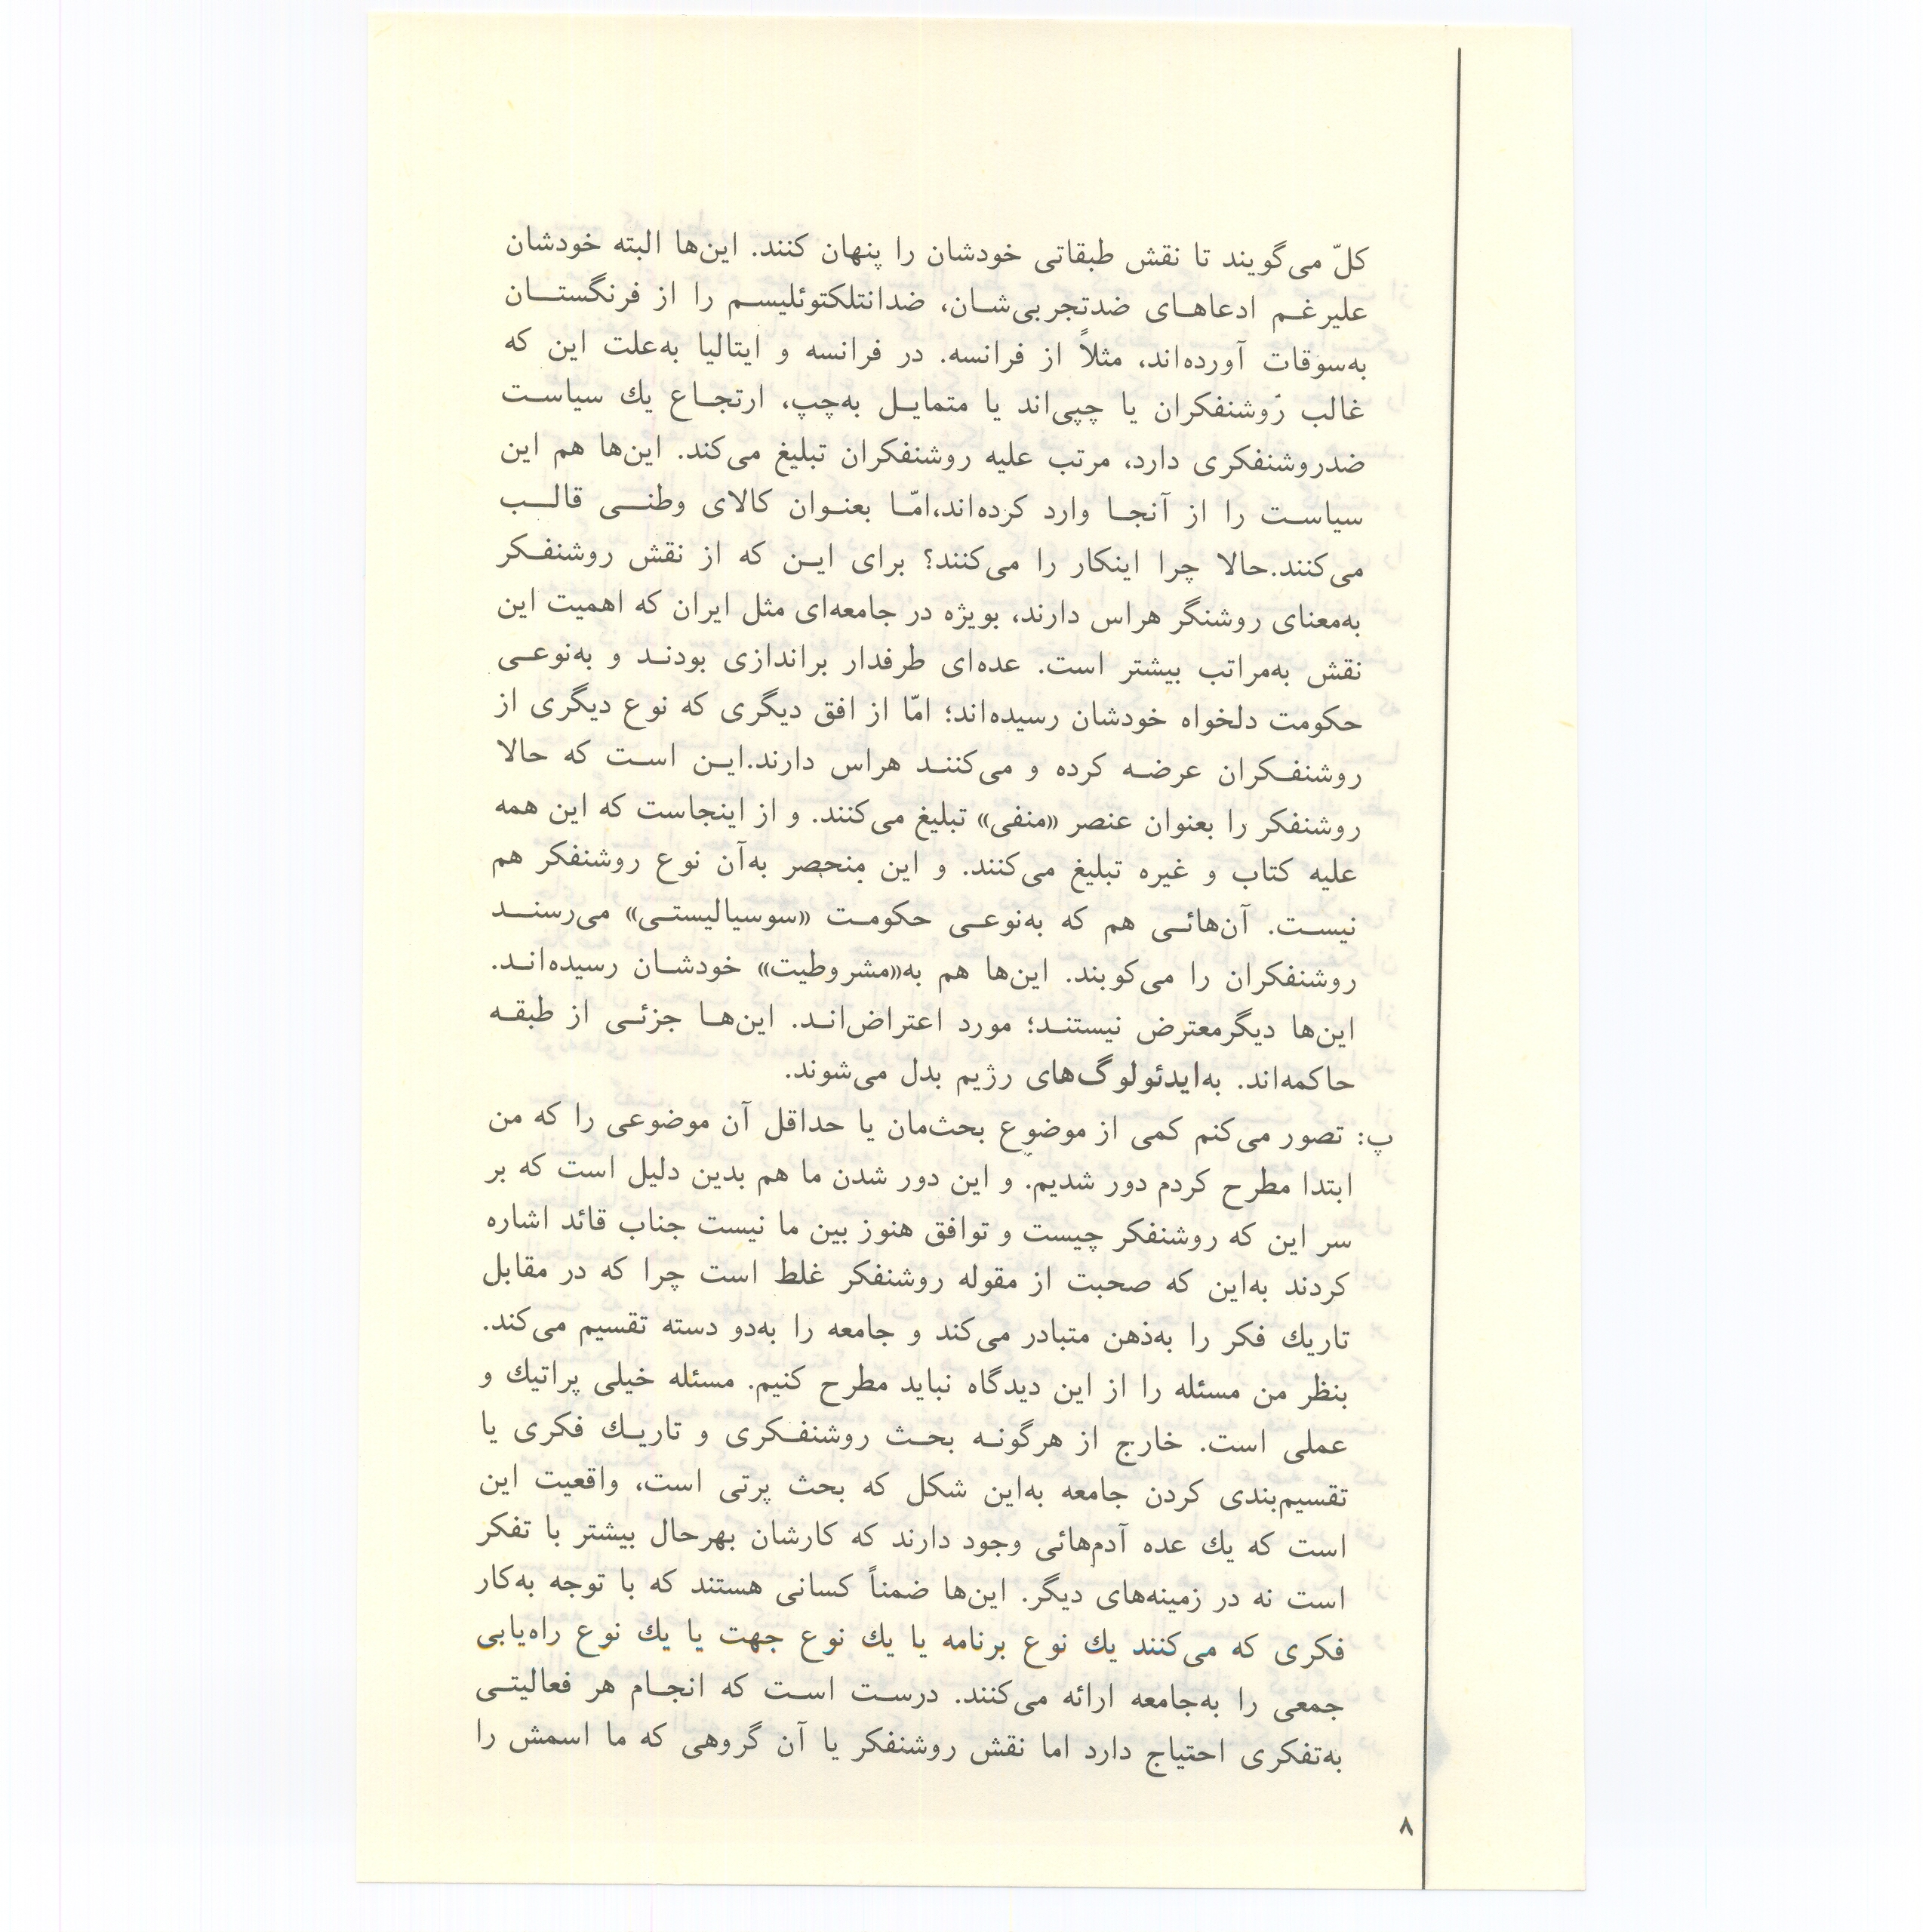 کلّ می‌گویند تا نقش طبقاتی خودشان را پنهان کنند. این‌ها البته خودشان
علیرغم ادعاهای ضدتجربی‌شان، ضدانتلکتوئلیسم را از فرنگستان
به‌سوقات آورده‌اند، مثلاً از فرانسه. در فرانسه و ایتالیا به‌علت این که
غالب روشنفکران یا چپی‌اند یا متمایل به‌چپ، ارتجاع یك سیاست
ضدروشنفکری دارد، مرتب علیه روشنفکران تبلیغ می‌کند. این‌ها هم این
سیاست را از آنجا وارد کرده‌اند،امّا بعنوان کالای وطنی قالب
می‌کنند.حالا چرا اینکار را می‌کنند؟ برای این که از نقش روشنفکر
به‌معنای روشنگر هراس دارند، بویژه در جامعه‌ای مثل ایران که اهمیت این
نقش به‌مراتب بیشتر است. عده‌ای طرفدار براندازی بودند و به‌نوعی
حکومت دلخواه خودشان رسیده‌اند؛ امّا از افق دیگری که نوع دیگری از
روشنفکران عرضه کرده و می‌کنند هراس دارند.این است که حالا
روشنفکر را بعنوان عنصر «منفی» تبلیغ می‌کنند. و از اینجاست که این همه
علیه کتاب و غیره تبلیغ می‌کنند. و این منحصر به‌آن نوع روشنفکر هم
نیست. آن‌هائی هم که به‌نوعی حکومت «سوسیالیستی» می‌رسند
روشنفکران را می‌کوبند. این‌ها هم به«مشروطیت» خودشان رسیده‌اند.
این‌ها دیگرمعترض نیستند؛ مورد اعتراض‌اند. این‌ها جزئی از طبقه
حاکمه‌اند. به‌ایدئولوگ‌های رژیم بدل می‌شوند.
پ: تصور می‌کنم کمی از موضوع بحث‌مان یا حداقل آن موضوعی را که من
ابتدا مطرح کردم دور شدیم. و این دور شدن ما هم بدین دلیل است که بر
سر این که روشنفکر چیست و توافق هنوز بین ما نیست جناب قائد اشاره
کردند به‌این که صحبت از مقوله روشنفکر غلط است چرا که در مقابل
تاریك فکر را به‌ذهن متبادر می‌کند و جامعه را به‌دو دسته تقسیم می‌کند.
بنظر من مسئله را از این دیدگاه نباید مطرح کنیم. مسئله خیلی پراتیك و
عملی است. خارج از هرگونه بحث روشنفکری و تاریك فکری یا
تقسیم‌بندی کردن جامعه به‌این شکل که بحث پرتی است، واقعیت این
است که یك عده آدم‌هائی وجود دارند که کارشان بهرحال بیشتر با تفکر
است نه در زمینه‌های دیگر. این‌ها ضمناً کسانی هستند که با توجه به‌کار
فکری که می‌کنند یك نوع برنامه یا یك نوع جهت یا یك نوع راه‌یابی
جمعی را به‌جامعه ارائه می‌کنند. درست است که انجام هر فعالیتی
به‌تفکری احتیاج دارد اما نقش روشنفکر یا آن گروهی که ما اسمش را
۸